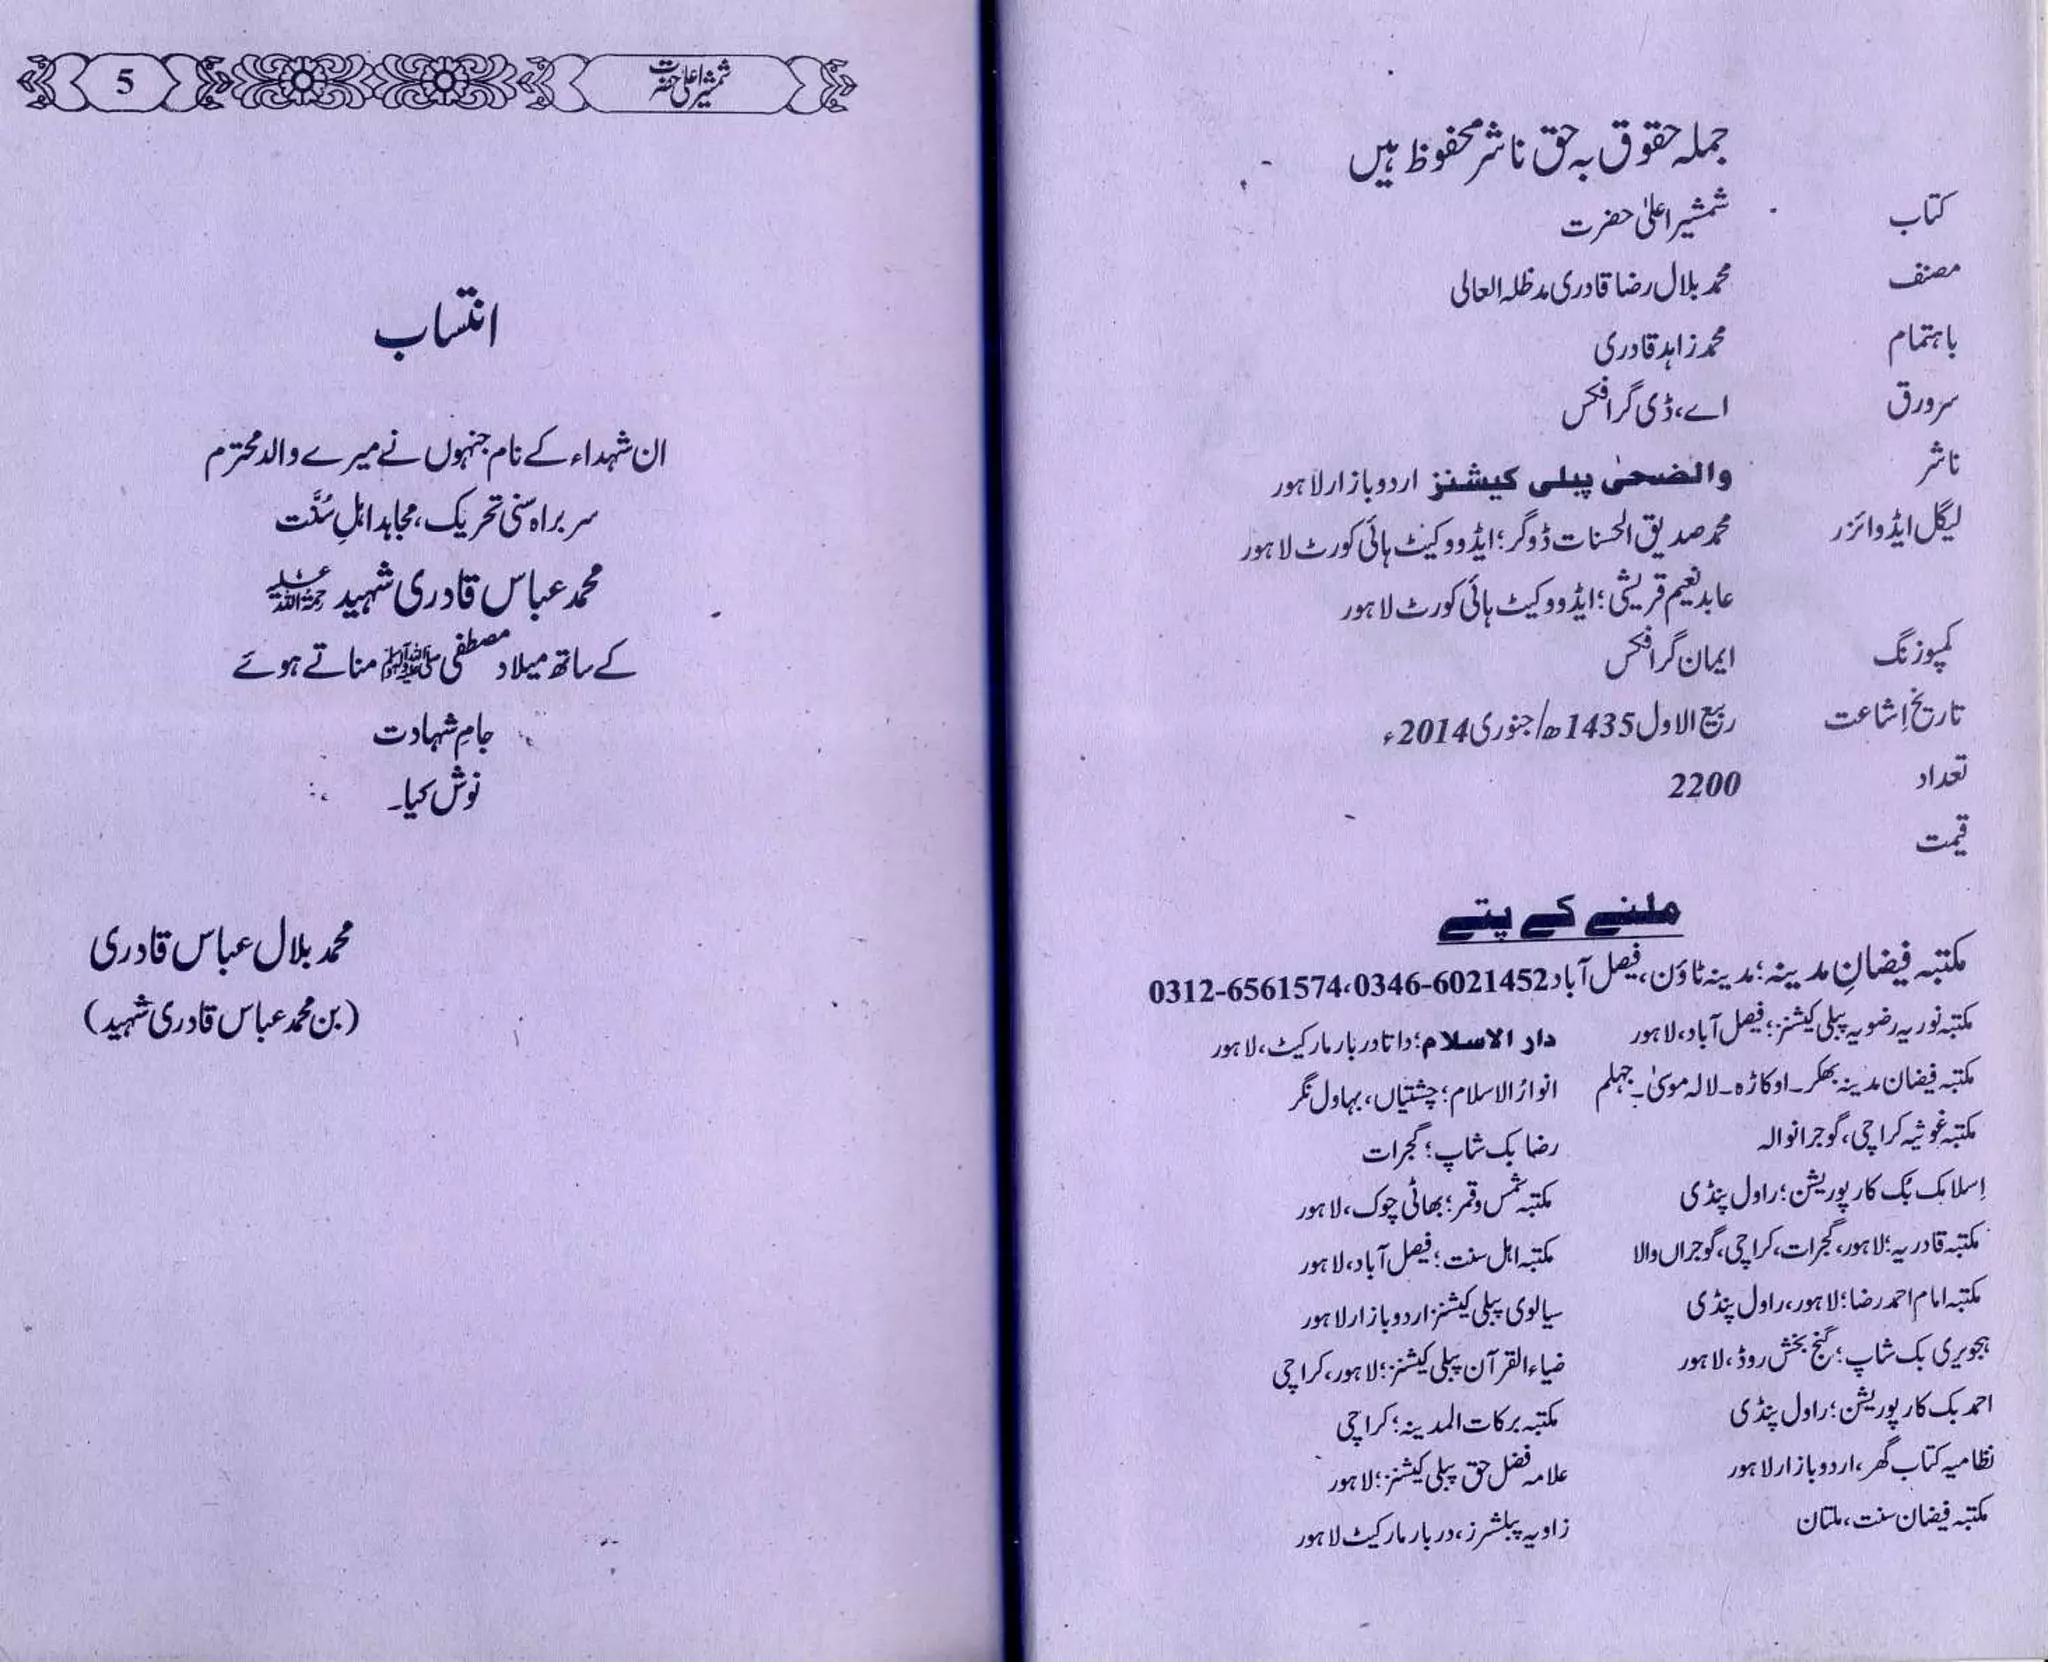 جملہ حقوق بہ حق ناشر محفوظ ہیں
کتاب شمشیر اعلیٰ حضرت
مصنف محمد بلال رضا قادری مدظلہ العالی
باہتمام محمد زاہد قادری
سرورق اے، ڈی گرافکس
ناشر والضحیٰ پبلی کیشنز اردو بازار لاہور
لیگل ایڈوائزر محمد صدیق الحسنات ڈوگر؛ ایڈووکیٹ ہائی کورٹ لاہور
عابد نعیم قریشی؛ ایڈووکیٹ ہائی کورٹ لاہور
کمپوزنگ ایمان گرافکس
تاریخِ اشاعت ربیع الاول 1435ھ/جنوری 2014ء
تعداد 2200
قیمت
ملنے کے پتے
مکتبہ فیضانِ مدینہ؛ مدینہ ٹاؤن، فیصل آباد 0312-6561574،0346-6021452
مکتبہ نوریہ رضویہ پبلی کیشنز؛ فیصل آباد، لاہور دار الاسلام؛ داتا دربار مارکیٹ، لاہور
مکتبہ فیضان مدینہ بھکر۔ اوکاڑہ۔ لالہ موسیٰ۔ جہلم انوارُ الاسلام؛ چشتیاں، بہاول نگر
مکتبہ غوثیہ کراچی، گوجرانوالہ رضا بک شاپ؛ گجرات
اِسلامک بُک کارپوریشن؛ راول پنڈی مکتبہ شمس و قمر؛ بھاٹی چوک، لاہور
مکتبہ قادریہ؛ لاہور، گجرات، کراچی، گوجراں والا مکتبہ اہل سنت؛ فیصل آباد، لاہور
مکتبہ امام احمد رضا؛ لاہور، راول پنڈی سیالوی پبلی کیشنز اردو بازار لاہور
ہجویری بک شاپ؛ گنج بخش روڈ، لاہور ضیاء القرآن پبلی کیشنز؛ لاہور، کراچی
احمد بک کارپوریشن؛ راول پنڈی مکتبہ برکات المدینہ؛ کراچی
نظامیہ کتاب گھر، اردو بازار لاہور علامہ فضل حق پبلی کیشنز؛ لاہور
مکتبہ فیضان سنت، ملتان زاویہ پبلشرز، دربار مارکیٹ لاہور
شمشیر اعلیٰ حضرت 5
انتساب
ان شہداء کے نام جنہوں نے میرے والد محترم
سربراہ سنی تحریک، مجاہد اہلِ سُنَّت
محمد عباس قادری شہید رحمۃ اللہ علیہ
کے ساتھ میلاد مصطفی ﷺ مناتے ہوئے
جامِ شہادت
نوش کیا۔
محمد بلال عباس قادری
(بن محمد عباس قادری شہید)